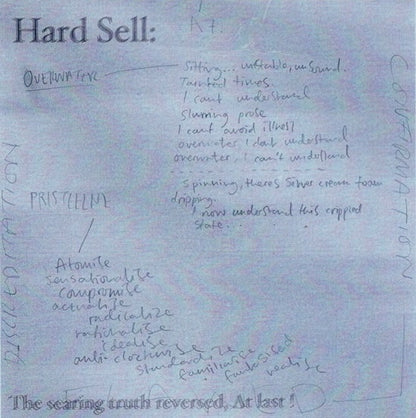 Hard Sell:
A7.
OVERWATER
Sitting... unstable, unsound.
Tainted times.
I cant understand
Slurring prose
I cant avoid illness
overwater I dont understand
overwater, I can't understand
Spinning, theres Silver cream foam
dripping.
I now understand this crippled
state...
CONFIRMATION
PRISTELINE
Atomise
Sensationalise
Compromise
actualise
radicalize
rationalise
idealise
anti-clockwise
standardize
familiarise
fantasised
realise
The searing truth reversed, At last !